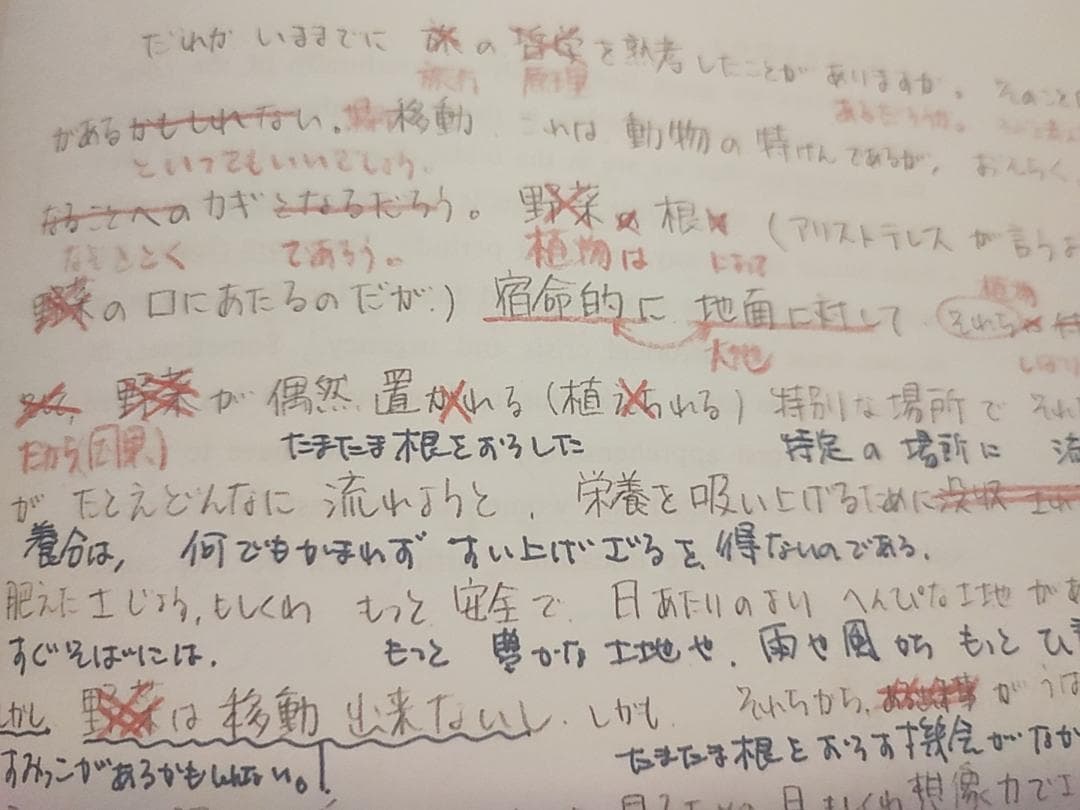 だれかいままでに 旅の哲学を熟考したことがありますか。そのこと
旅行 原理
あるだろうか。
があるかもしれない。移動 これは動物の特けんであるが、おそらく、
といってもいいでしょう。
なることへのカギとなるだろう。野菜は根は (アリストテレスが言うよ
なぞとく であろう。 植物は によって
野菜の口にあたるのだが。) 宿命的に 地面に対して それらは
植物
大地
しばり
野菜が偶然置かれる (植えられる) 特別な場所で それ
だから(因果、) たまたま根をおろした 特定の場所に
がたとえどんなに流れようと、栄養を吸い上げるために没収
養分は、何でもかまわず すい上げざるを得ないのである。
肥えた土じょう、もしくわ もっと安全で、日あたりのよい へんぴな土地があ
すぐそばには、 もっと豊かな土地や、雨や風から もっとひ
しかし 野菜は移動出来ないし、しかも それらから、がうば
すみっこがあるかもしれない。 たまたま根をおろす機会がなか
想像力で